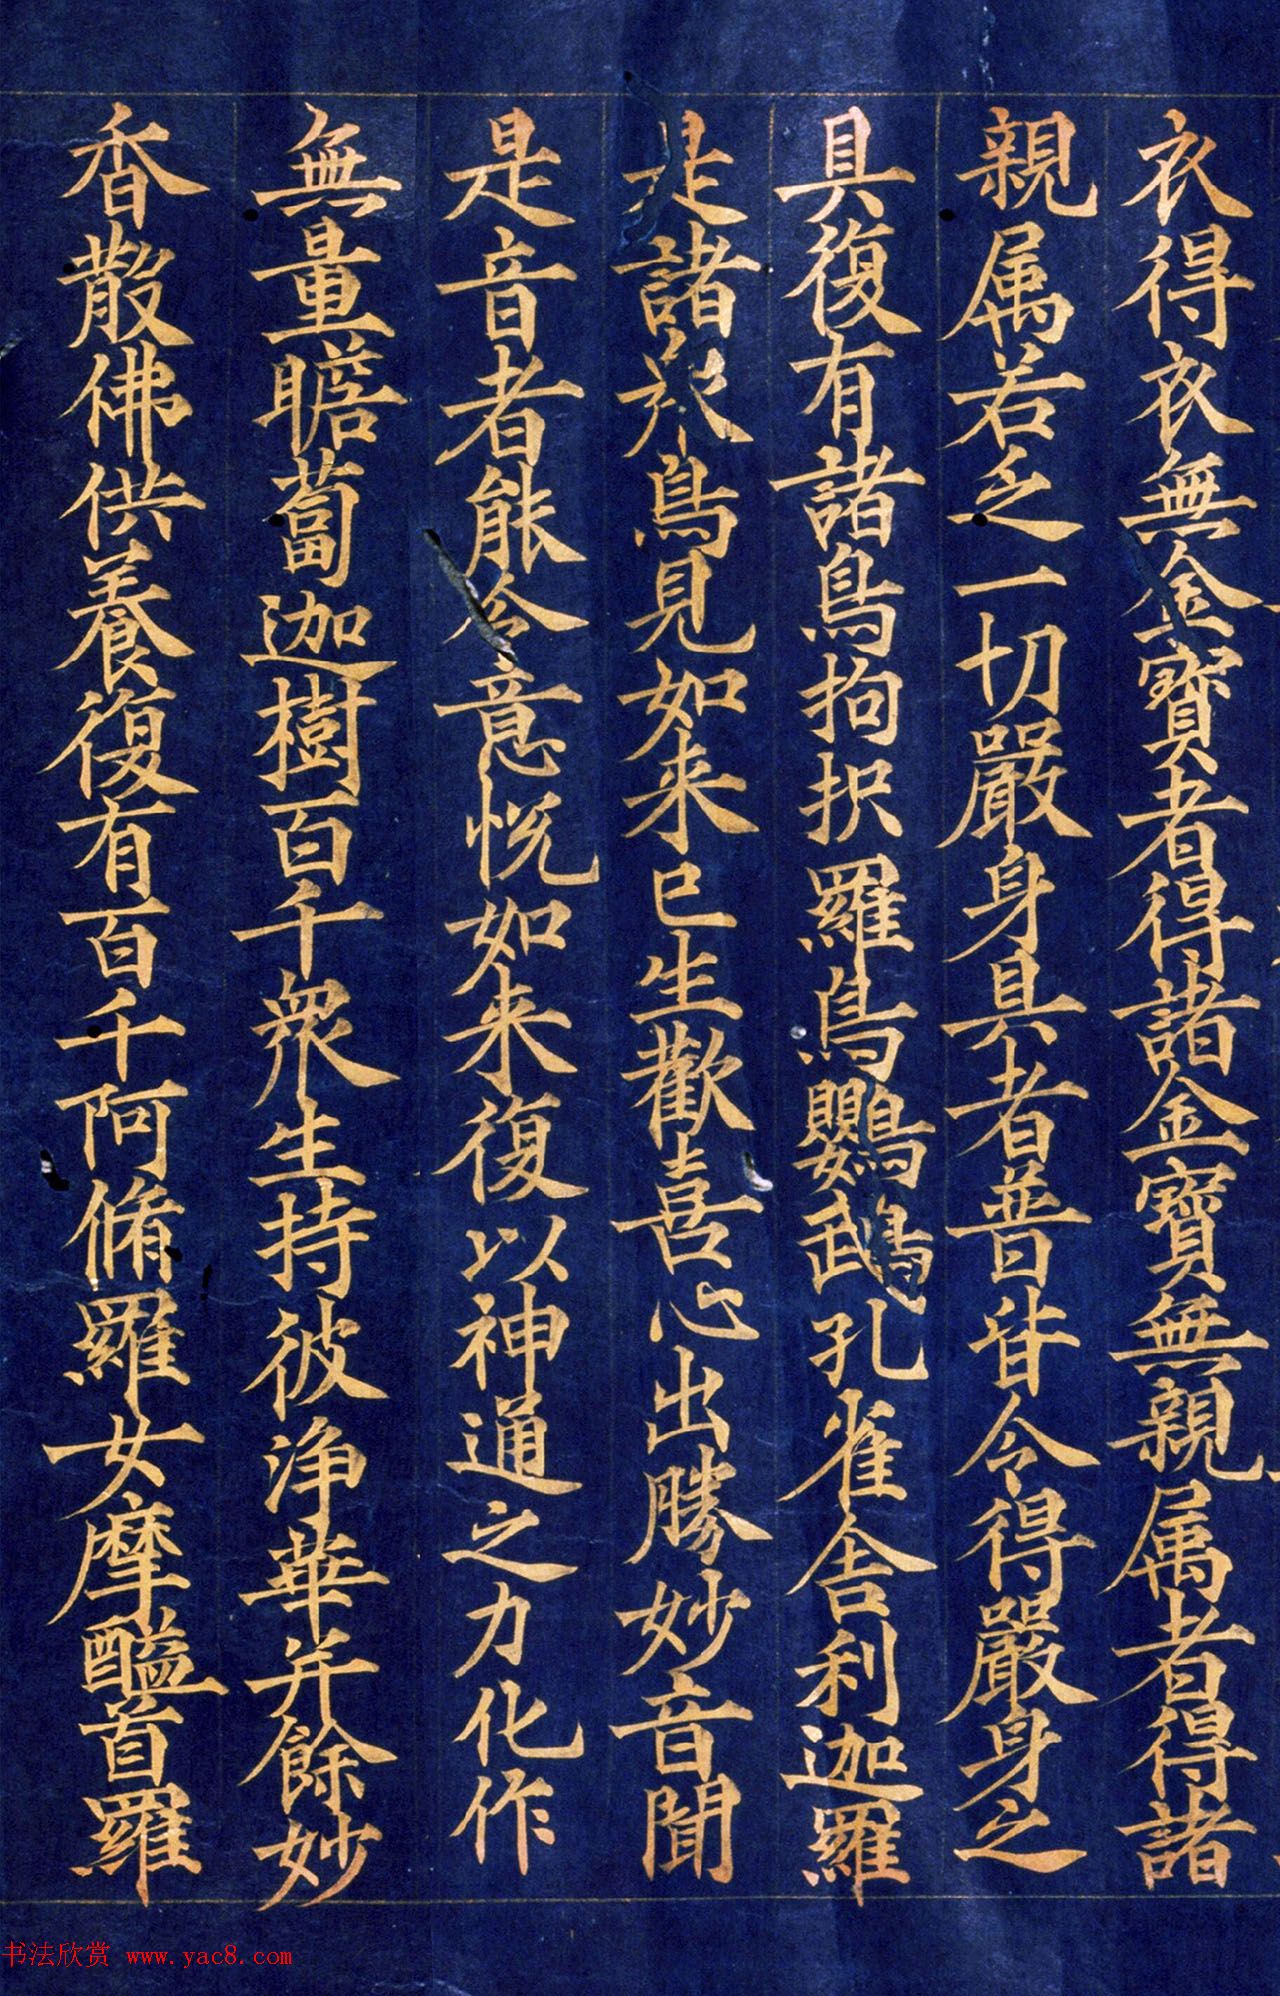 衣得衣無金寶者得諸金寶無親属者得諸
親属若乏一切嚴身具者普皆令得嚴身之
具復有諸鳥拘抧羅鳥鸚鵡孔雀舍利迦羅
是諸衆鳥見如来已生歡喜心出勝妙音聞
是音者能令意悦如来復以神通之力化作
無量瞻蔔迦樹百千衆生持彼浄華并餘妙
香散佛供養復有百千阿脩羅女摩醯首羅
书法欣赏 www.yac8.com